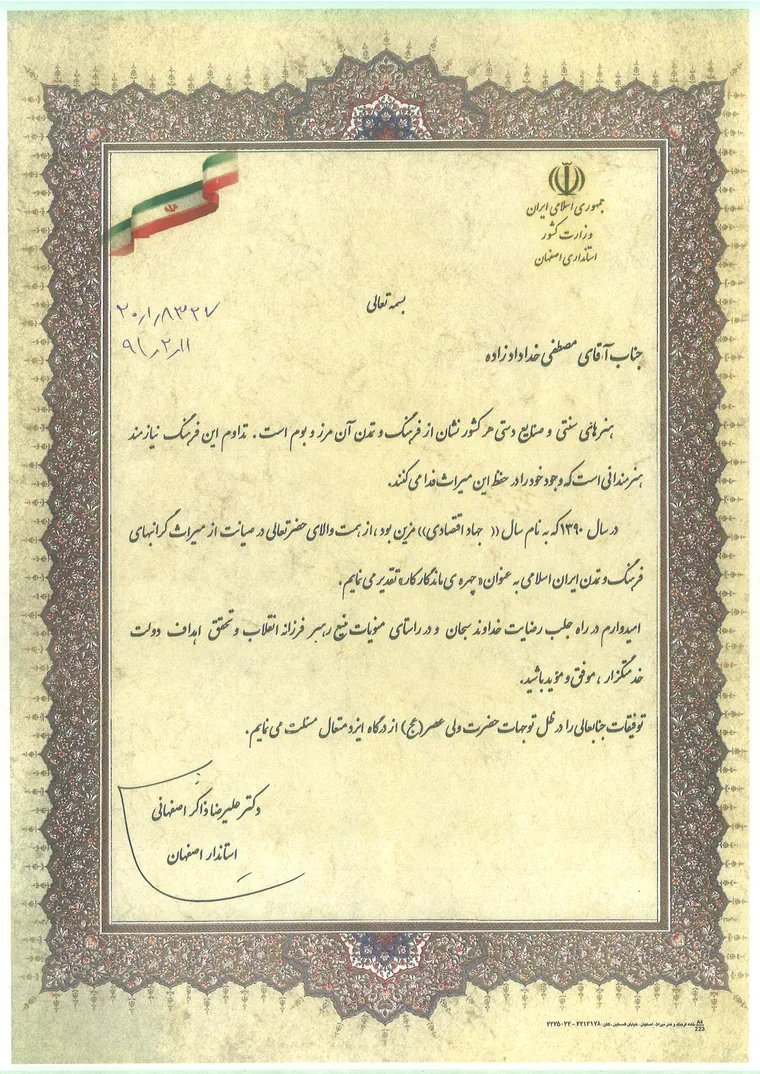 جمهوری اسلامی ایران
وزارت کشور
استانداری اصفهان
بسمه تعالی
۲۰/۱/۸۳۲۷
۹۱/۲/۱۱
جناب آقای مصطفی خدادادزاده
هنرهای سنتی و صنایع دستی هر کشور نشان از فرهنگ و تمدن آن مرز و بوم است. تداوم این فرهنگ نیازمند
هنرمندانی است که وجود خود را در حفظ این میراث فدا می کنند.
در سال ۱۳۹۰ که به نام سال ((جهاد اقتصادی)) مزین بود، از همت والای حضرتعالی در صیانت از میراث گرانبهای
فرهنگ و تمدن ایران اسلامی به عنوان «چهره ی ماندگار کار» تقدیر می نمایم.
امیدوارم در راه جلب رضایت خداوند سبحان و در راستای منویات منیع رهبر فرزانه انقلاب و تحقق اهداف دولت
خدمتگزار، موفق و مؤید باشید.
توفیقات جنابعالی را در ظل توجهات حضرت ولی عصر(عج) از درگاه ایزد متعال مسئلت می نمایم.
دکتر علیرضا ذاکر اصفهانی
استاندار اصفهان
خانه فرهنگ و هنر میراث: اصفهان، خیابان فلسطین، تلفن: ۲۲۱۳۱۷۸ - ۲۲۲۵۰۲۲
223